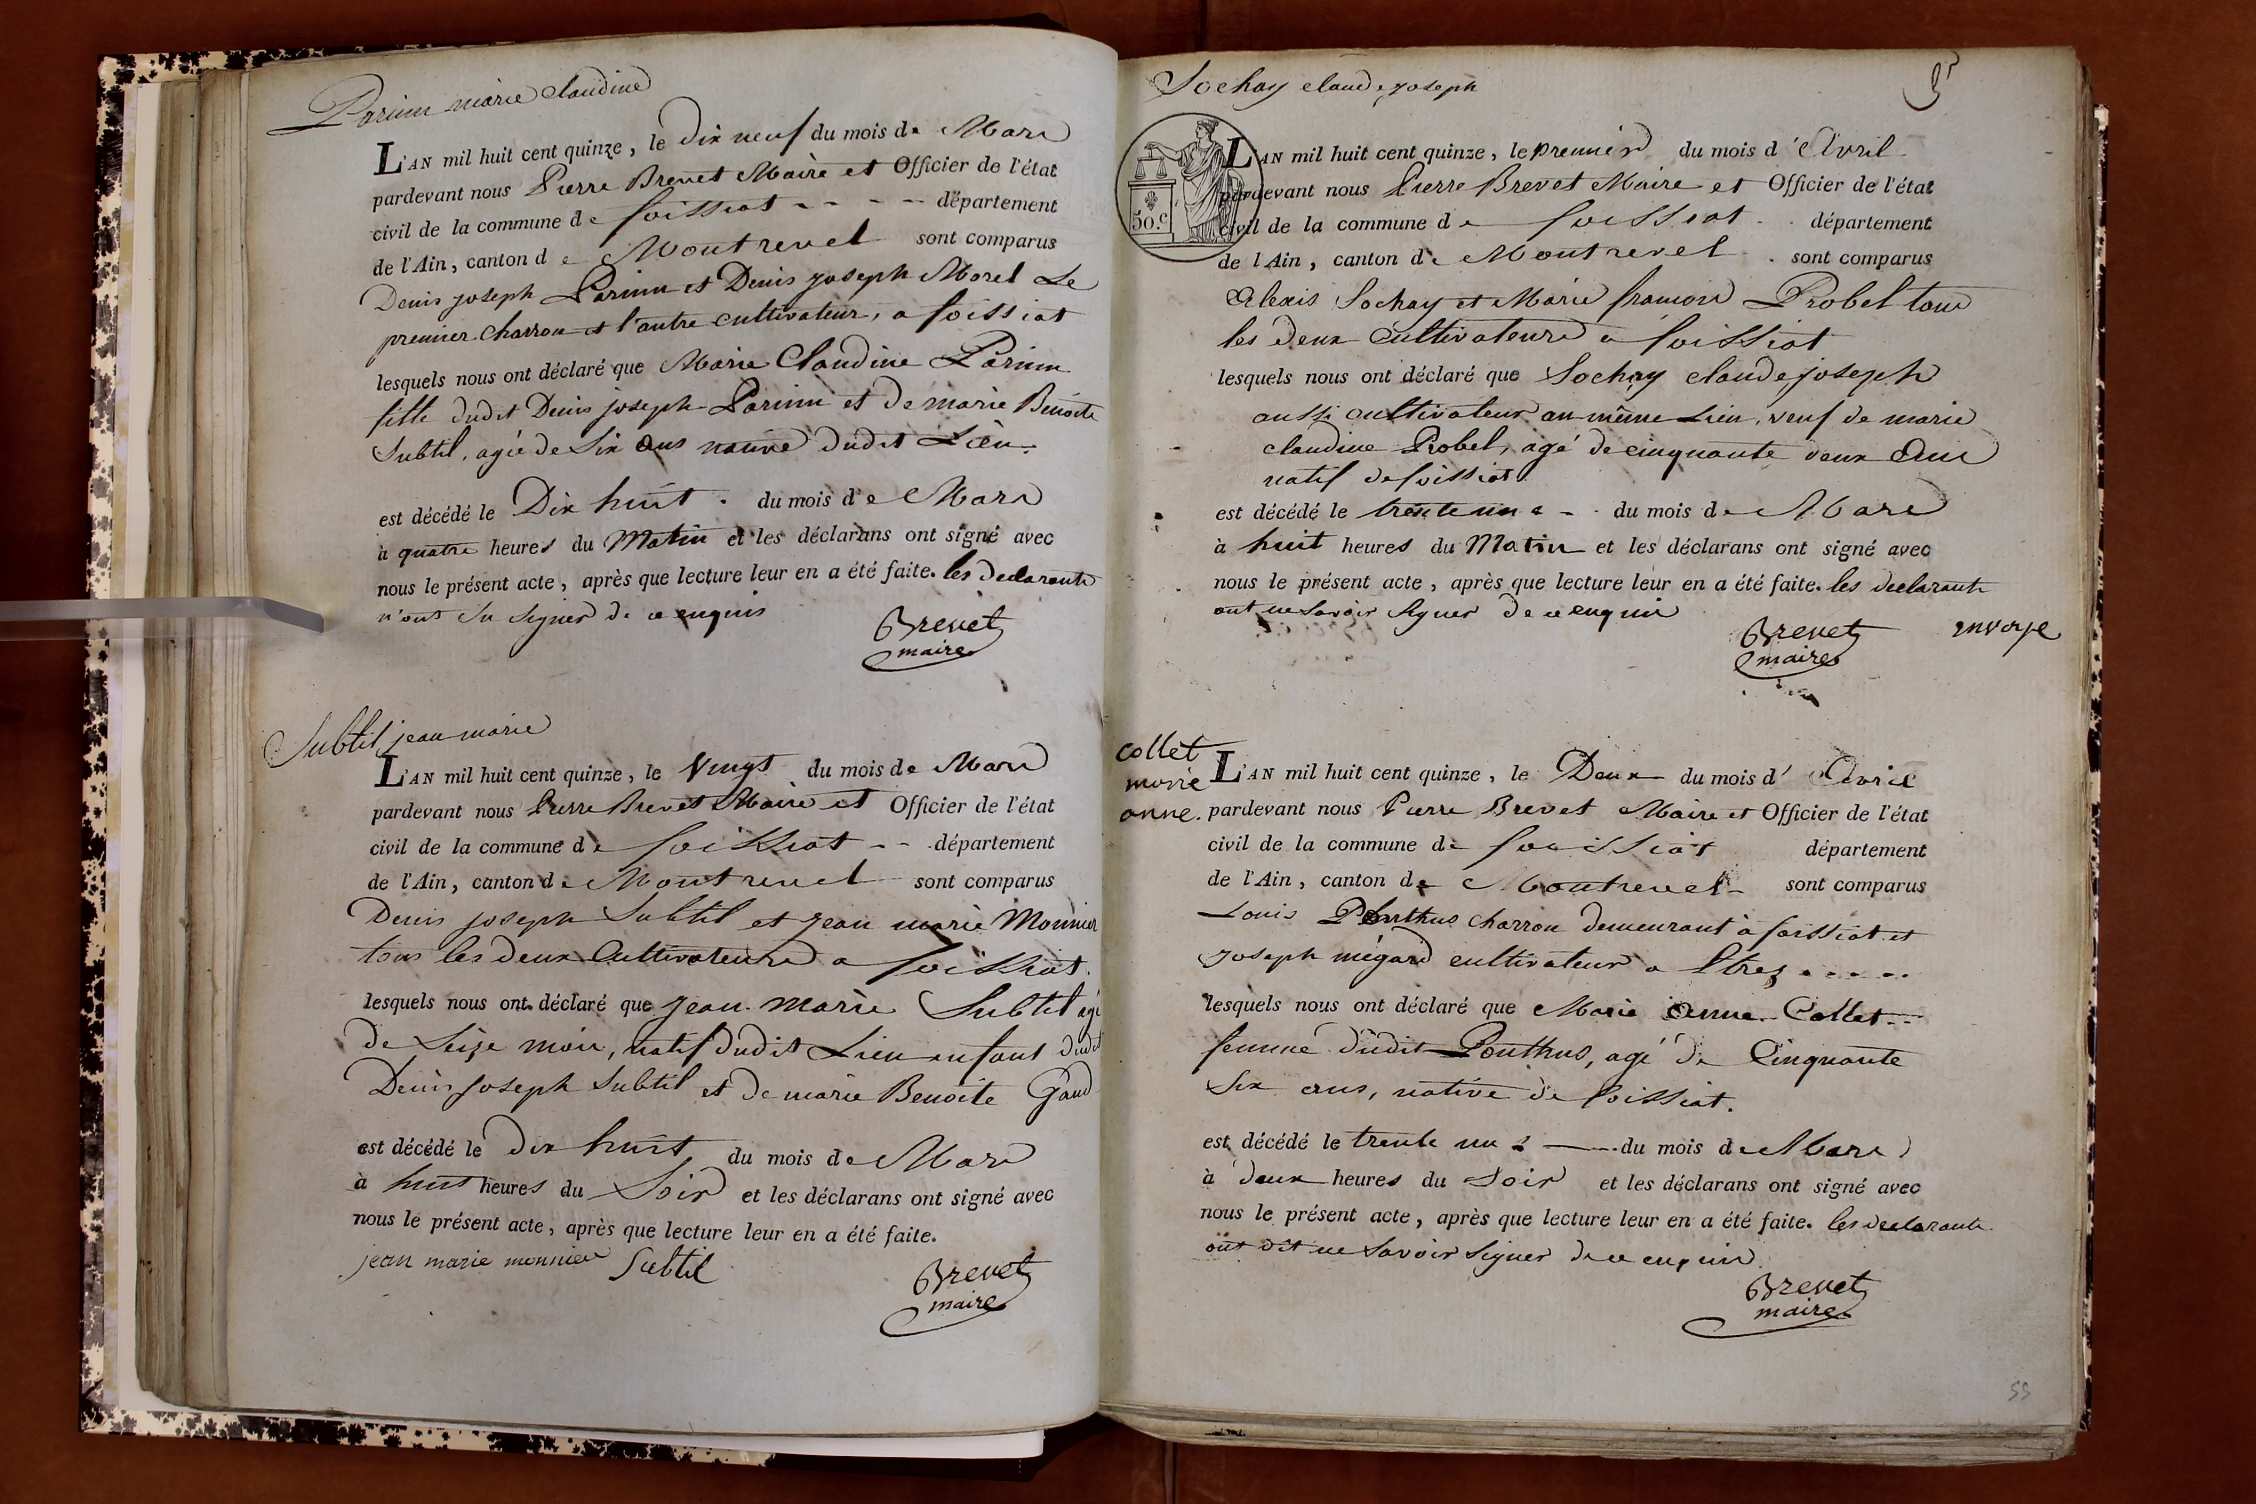 Parium marie claudine
L'AN mil huit cent quinze, le dix neuf du mois de Mars
pardevant nous Pierre Brevet Maire et Officier de l'état
civil de la commune de foissiat département
de l'Ain, canton de Montrevel sont comparus
Denis joseph et Denis joseph Morel Le
premier charron et l'autre cultivateur, a foissiat
lesquels nous ont déclaré que Marie Claudine
fille dudit Denis joseph et de marie Benoite
Subtil, agée de Six ans native dudit Lieu.
est décédé le Dix huit . du mois de Mars
à quatre heures du Matin et les déclarans ont signé avec
nous le présent acte, après que lecture leur en a été faite. les declarants
n'ont su signer de ce enquis
Brevet
maire
Subtil jean marie
L'AN mil huit cent quinze, le vingt du mois de Mars
pardevant nous Pierre Brevet Maire et Officier de l'état
civil de la commune de foissiat département
de l'Ain, canton de Montrevel sont comparus
Denis joseph Subtil et jean marie Monnier
tous les deux Cultivateurs a foissiat.
lesquels nous ont déclaré que jean marie Subtil agé
de Seize mois, natif dudit Lieu enfant dudit
Denis joseph Subtil et de marie Benoite Gaud
est décédé le dix huit du mois de Mars
à huit heures du Soir et les déclarans ont signé avec
nous le présent acte, après que lecture leur en a été faite.
jean marie monnier Subtil
Brevet
maire
Sochay claude joseph
50.c
L'AN mil huit cent quinze, le premier du mois d'Avril
pardevant nous Pierre Brevet Maire et Officier de l'état
civil de la commune de foissiat département
de l'Ain, canton de Montrevel . sont comparus
Alexis Sochay et Marie françois Probel tous
les deux Cultivateurs a foissiat
lesquels nous ont déclaré que Sochay claude joseph
aussi cultivateur au même Lieu, veuf de marie
claudine Probel, agé de cinquante deux Ans
natif de foissiat
est décédé le trente un du mois de Mars
à huit heures du Matin et les déclarans ont signé avec
nous le présent acte, après que lecture leur en a été faite. les declarants
ont ne savoir signer de ce enquis
Brevet
maire
collet
marie
anne.
L'AN mil huit cent quinze, le Deux du mois d'Avril
pardevant nous Pierre Brevet Maire et Officier de l'état
civil de la commune de foissiat département
de l'Ain, canton de Montrevel sont comparus
Louis Ponthus charron demeurant à foissiat et
joseph mégard cultivateur a Etrez
lesquels nous ont déclaré que Marie Anne Collet
femme dudit Ponthus, agé de Cinquante
Six ans, native de foissiat.
est décédé le trente un du mois de Mars
à deux heures du Soir et les déclarans ont signé avec
nous le présent acte, après que lecture leur en a été faite. les declarants
ont dit ne savoir signer de ce enquis
Brevet
maire
55